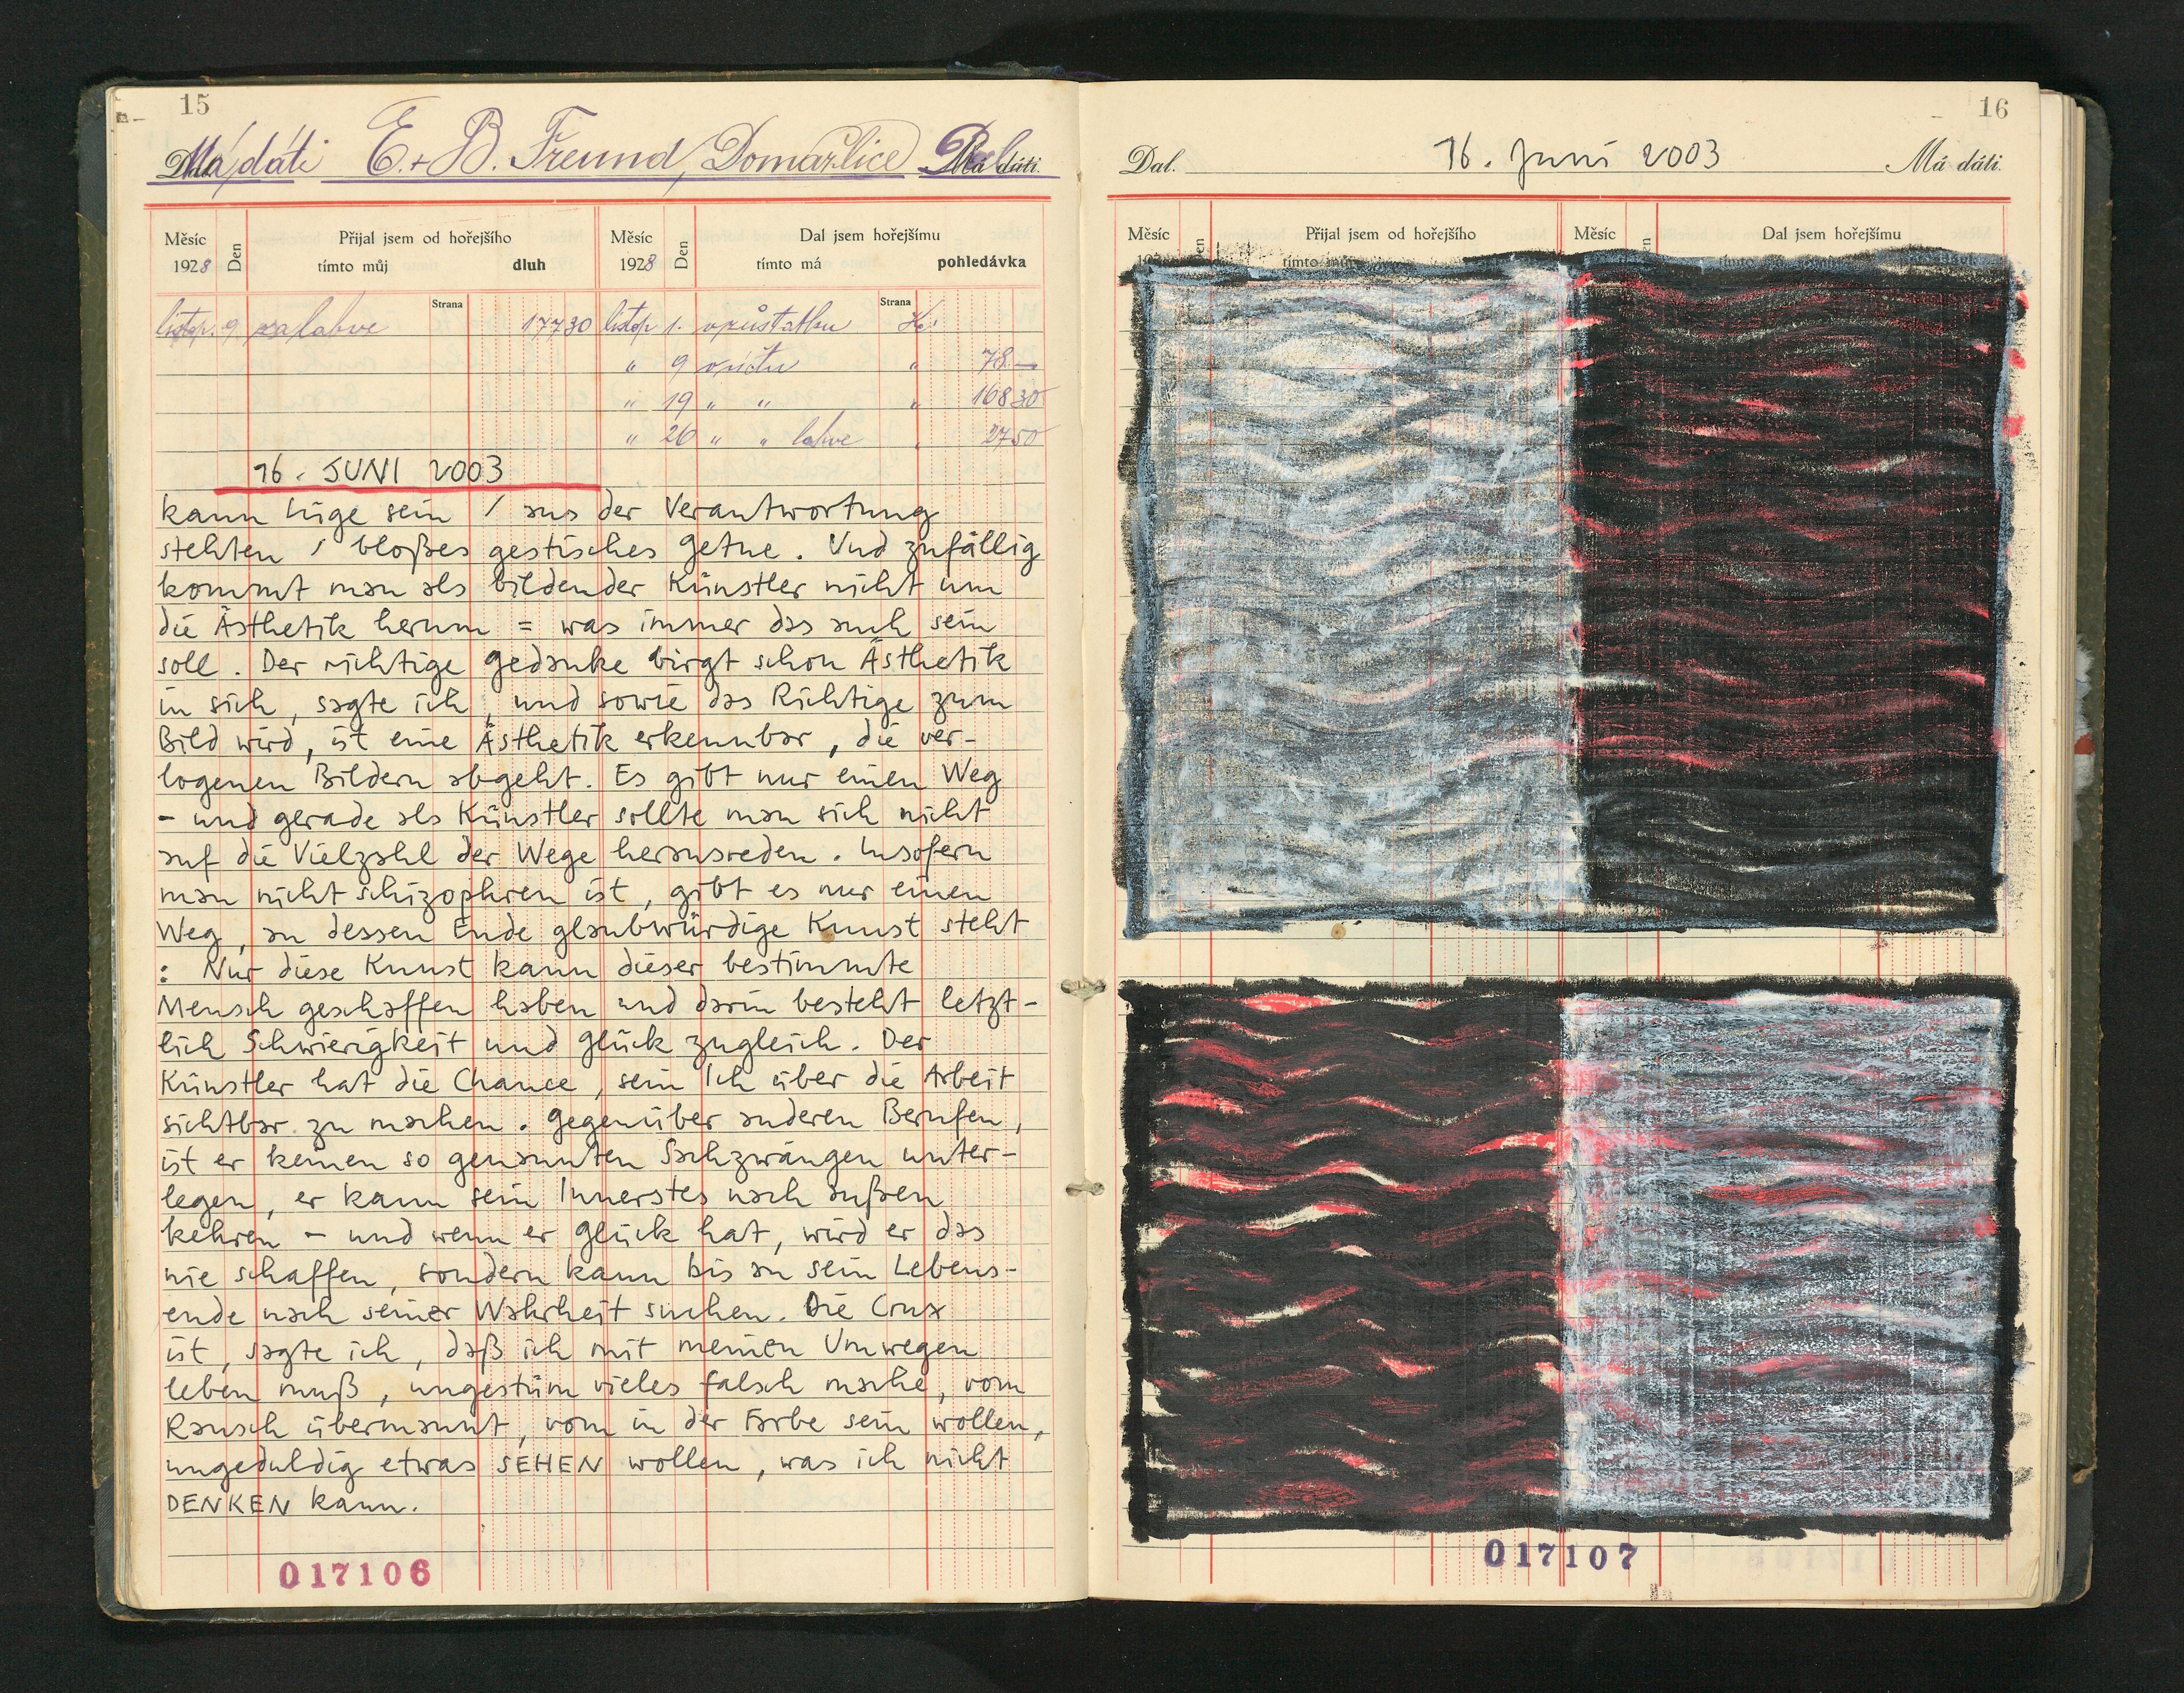 15
Má dáti E. + B. Freund, Domažlice Dal
Měsíc Den Přijal jsem od hořejšího Měsíc Den Dal jsem hořejšímu
1928 tímto můj dluh 1928 tímto má pohledávka
Strana Strana
listop. 9. za lahve 177 30 listop 1. Kč
" 9 " 78.—
" 19 " " " 168 30
" 26 " " lahve " 27 50
16. JUNI 2003
kann Lüge sein / aus der Verantwortung
stehlen / bloßes gestisches Getue. Und zufällig
kommt man als bildender Künstler nicht um
die Ästhetik herum = was immer das auch sein
soll. Der richtige Gedanke birgt schon Ästhetik
in sich, sagte ich, und sowie das Richtige zum
Bild wird, ist eine Ästhetik erkennbar, die ver-
logenen Bildern abgeht. Es gibt nur einen Weg
- und gerade als Künstler sollte man sich nicht
auf die Vielzahl der Wege herausreden. Insofern
man nicht schizophren ist, gibt es nur einen
Weg, an dessen Ende glaubwürdige Kunst steht
: Nur diese Kunst kann dieser bestimmte
Mensch geschaffen haben und darin besteht letzt-
lich Schwierigkeit und Glück zugleich. Der
Künstler hat die Chance, sein Ich über die Arbeit
sichtbar zu machen. Gegenüber anderen Berufen,
ist er keinen so genannten Sachzwängen unter-
legen, er kann sein Innerstes nach außen
kehren - und wenn er Glück hat, wird er das
nie schaffen, sondern kann bis an sein Lebens-
ende nach seiner Wahrheit suchen. Die Crux
ist, sagte ich, daß ich mit meinen Umwegen
leben muß, ungestüm vieles falsch mache, vom
Rausch übermannt, vom in der Farbe sein wollen,
ungeduldig etwas SEHEN wollen, was ich nicht
DENKEN kann.
017106
16
Dal. 16. Juni 2003 Má dáti.
Měsíc Den Přijal jsem od hořejšího Měsíc Den Dal jsem hořejšímu
017107